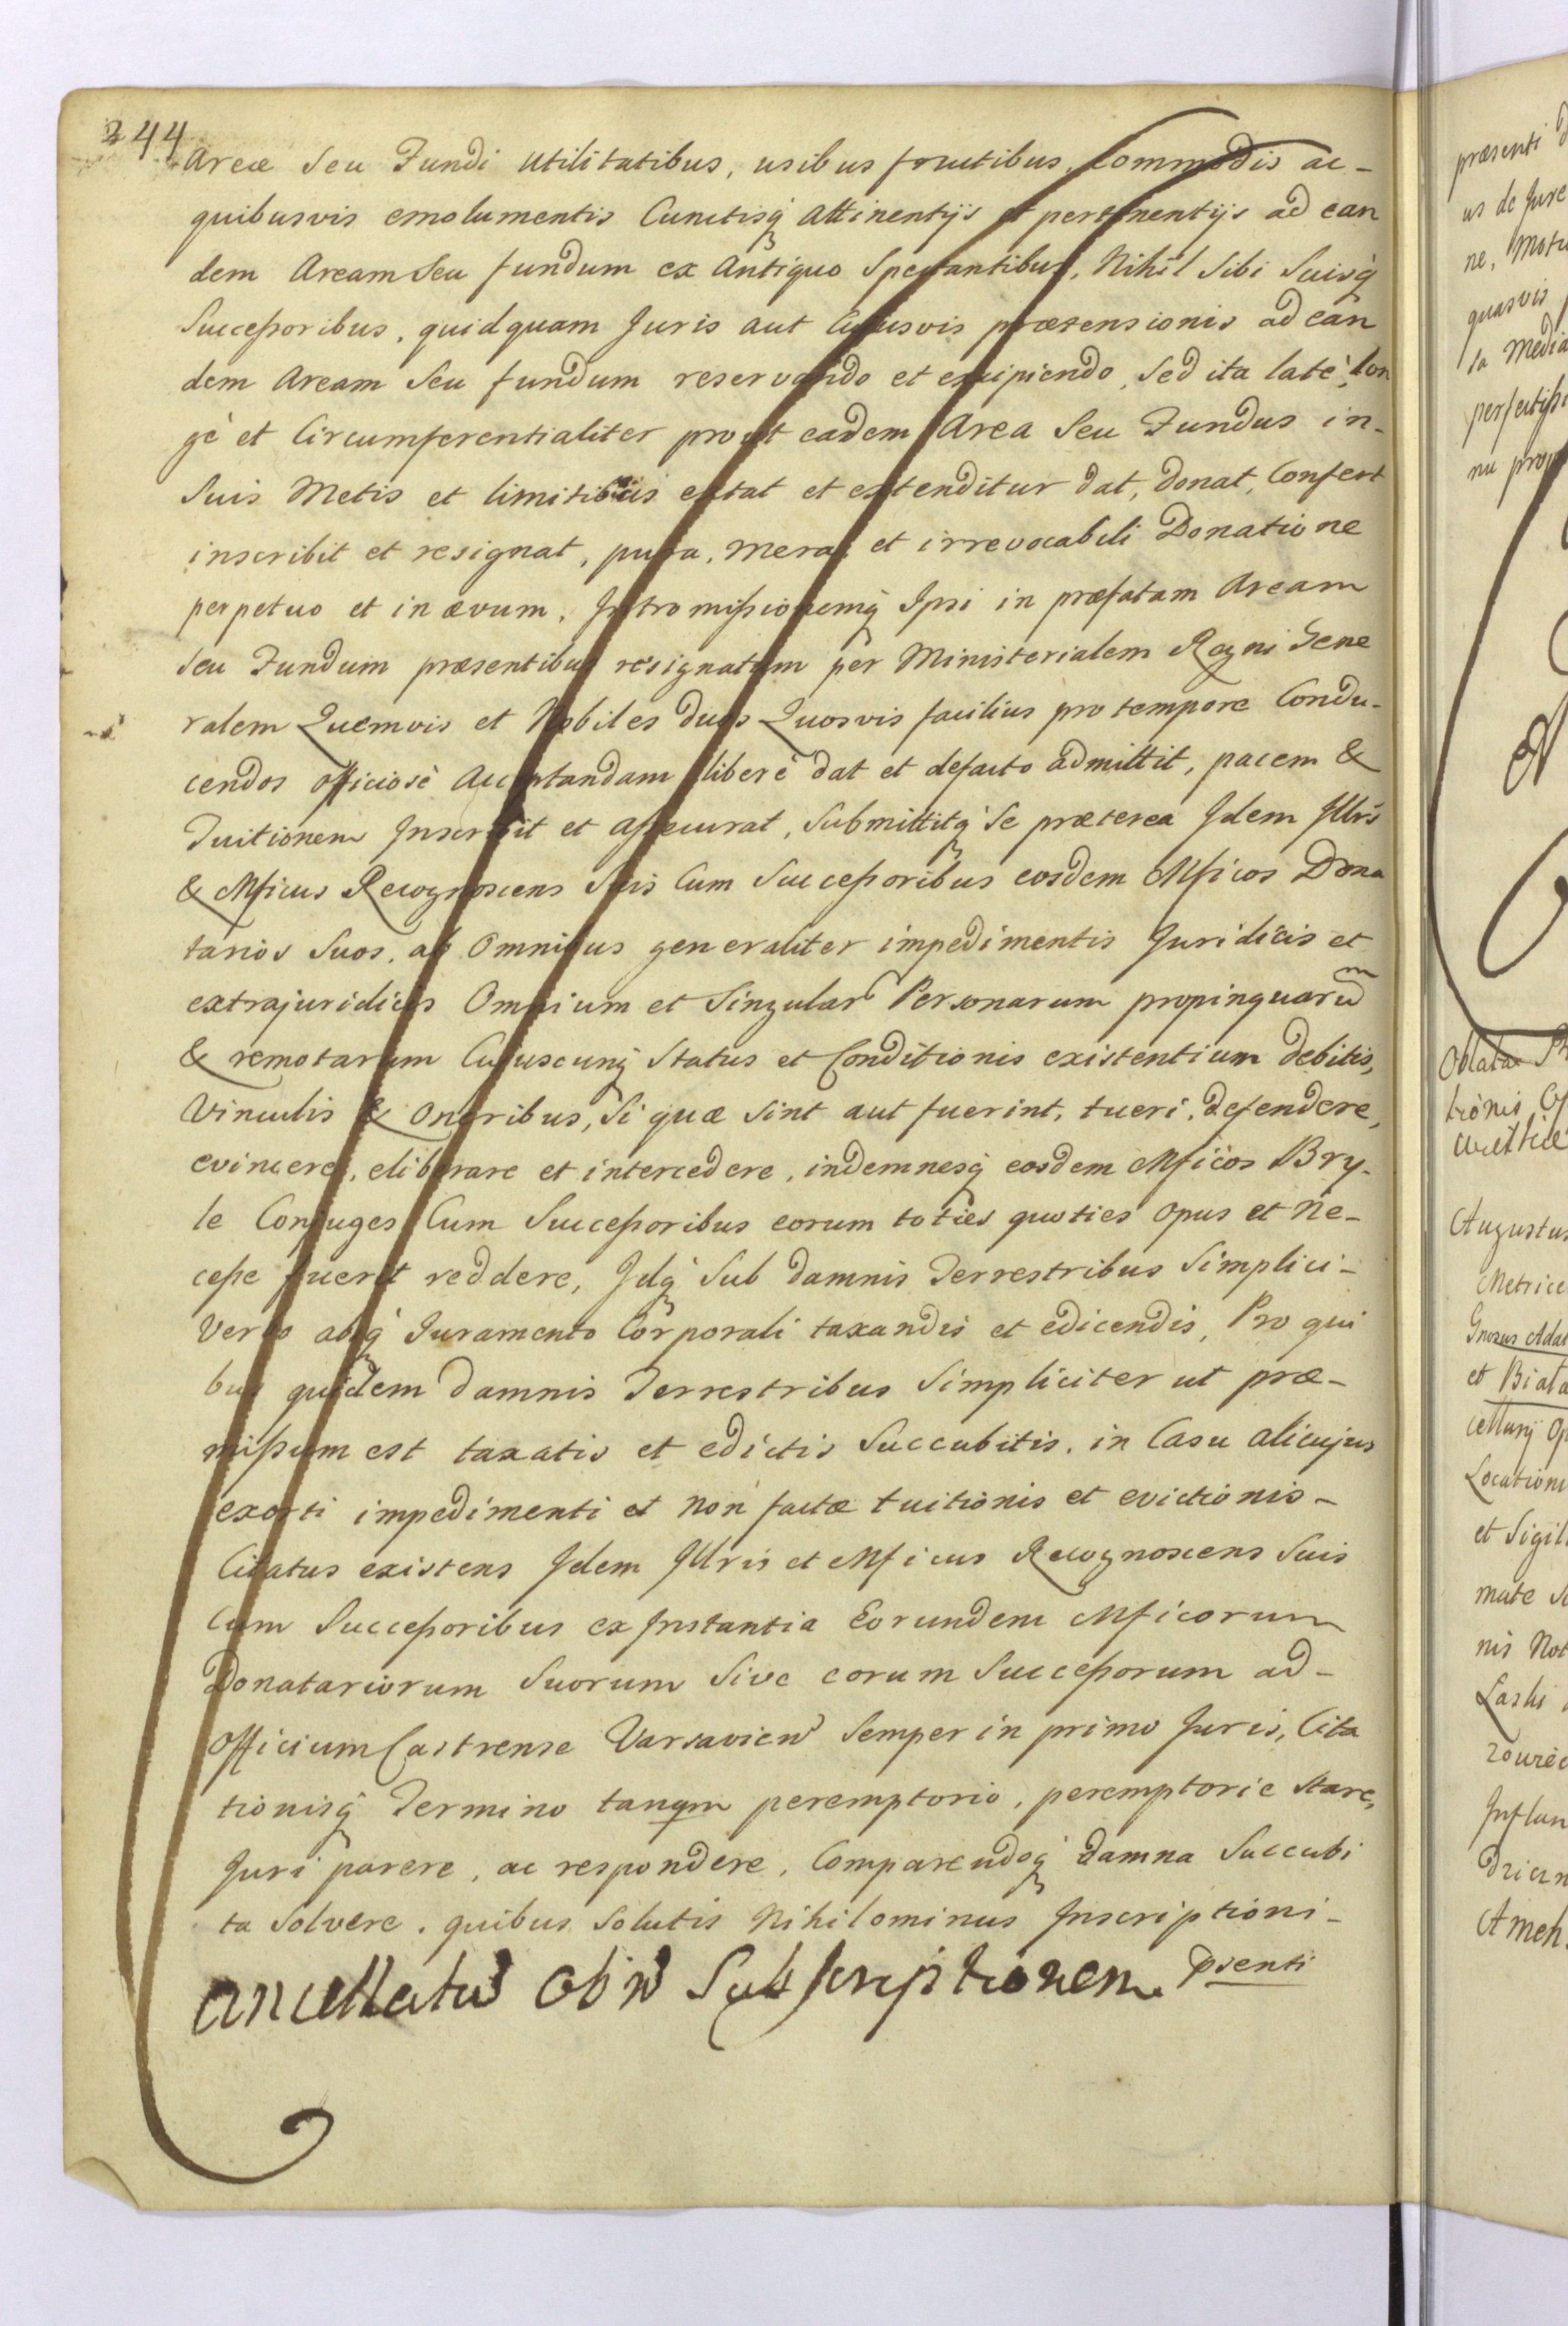 244
Areæ Seu Fundi utilitatibus, usibus fructibus, Commodis ac-
quibusvis emolumentis Cunctisq́ Attinentijs et pertinentijs ad ean
dem Aream Seu fundum ex Antiquo Spectantibus, Nihil Sibi Suisq́
Succeßoribus, quidquam Juris aut Cujusvis prætensionis ad ean
dem Aream Seu fundum reservando et excipiendo, Sed ita latè, lon
gè et Circumferentialiter prout eadem Area Seu Fundus in-
Suis Metis et limitibus extat et extenditur dat, Donat, Confert
inscribit et resignat, pura, mera, et irrevocabili Donatione
perpetuo et in ævum, Intromißionemq́ Ipsi in præfatam Aream
Seu Fundum præsentibus resignatam per Ministerialem Regni Gene
ralem Quemvis et Nobiles duos Quosvis facilius pro tempore Condu-
cendos officiosè Acceptandam liberè dat et defacto admittit, pacem &
Tuitionem Inscribit et aßecurat, Submittitq́ Se præterea Idem Illris
& Mficus Recognoscens Suis Cum Succeßoribus eosdem Mficos Dona
tarios Suos, ab Omnibus generaliter impedimentis Juridicis et
extrajuridicis Omnium et Singular Personarum propinquarum
& remotarum Cujuscunq́ Status et Conditionis existentium debitis,
Vinculis & Oneribus, Si quæ Sint aut fuerint, tueri, defendere,
evincere, eliberare et intercedere, indemnesq́ eosdem Mficos Bry-
le Conjuges Cum Succeßoribus eorum toties quoties Opus et Ne-
ceße fuerit reddere, Idq́ Sub damnis Terrestribus Simplici-
Verbo absq́ Juramento Corporali taxandis et edicendis, Pro qui
bus quidem Damnis Terrestribus Simpliciter ut præ-
mißum est taxatis et edictis Succubitis, in Casu alicujus
exorti impedimenti et non factæ tuitionis et evictionis-
Citatus existens Idem Illris et Mficus Recognoscens Suis
Cum Succeßoribus ex Instantia Eorundem Mficorum
Donatariorum Suorum Sive eorum Succeßorum ad-
Officium Castrense Varsavien Semper in primo Juris, Cita
tionisq́ Termino tanqm peremptorio, peremptorie Stare,
Juri parere, ac respondere, Comparendoq́ damna Succubi
ta Solvere, quibus Solutis Nihilominus Inscriptioni-
pænti
Cancellatus Ob n Subscriptionem
præsenti
us de Jure
ne, Motu
quasvis
ta Media
perfectißi
Oblata
tionis
Augustus
Metrice
Gnosus Adal
et Biala
cellarij
Locationi
et Sigil
mate
nis Not
Laski